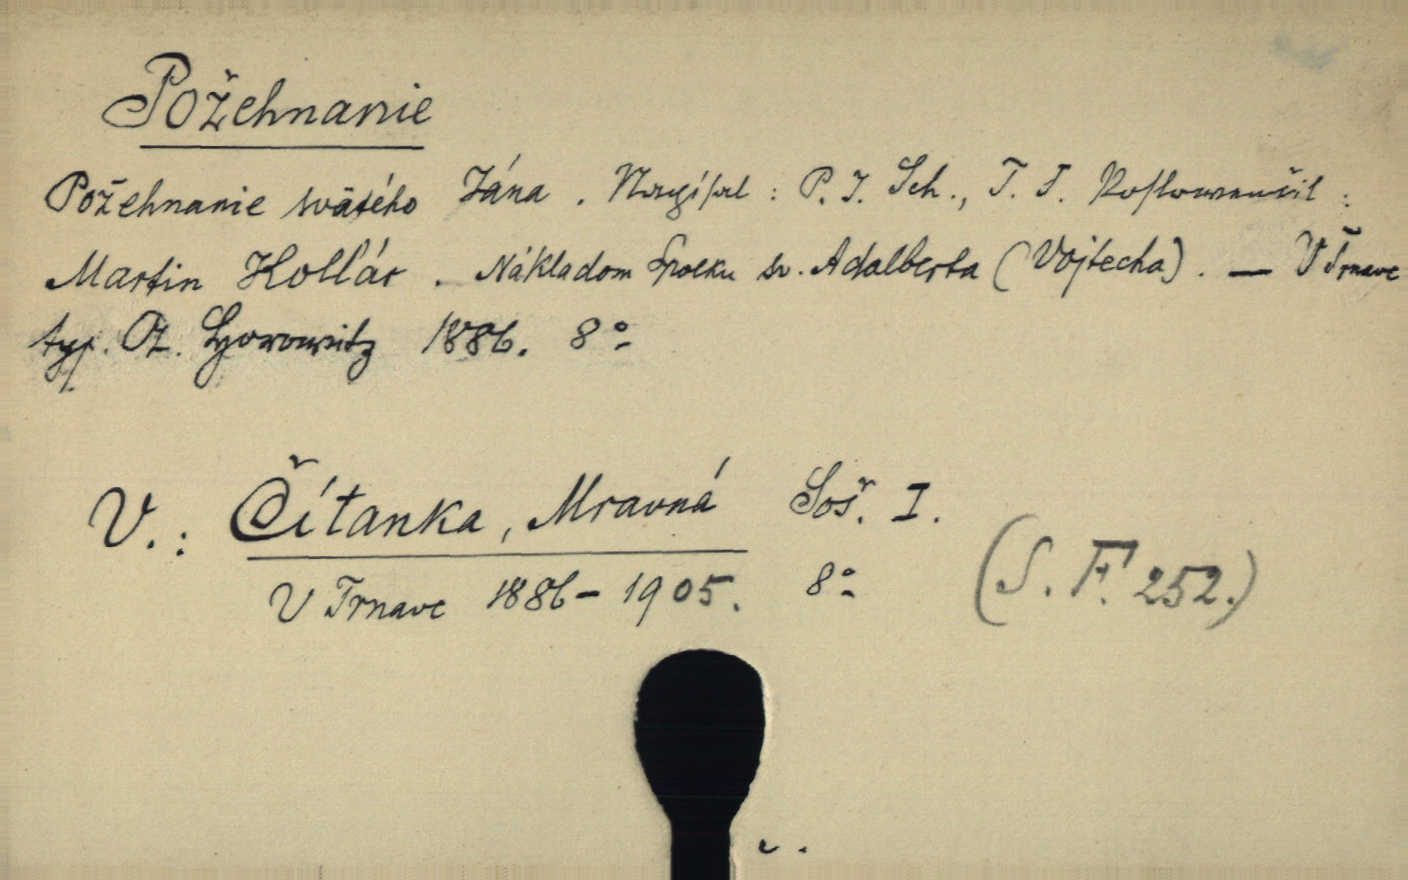 Požehnanie
Požehnanie svätého Jána. Napísal: P. J. Sch., T. J. Poslovenčil:
Martin Kollár. Nákladom Spolku sv. Adalberta (Vojtecha). — V Trnave
typ. A. Horowitz 1886. 8°
V.: Čítanka, Mravná Soš. I.
V Trnave 1886–1905. 8°
(S. F. 252.)